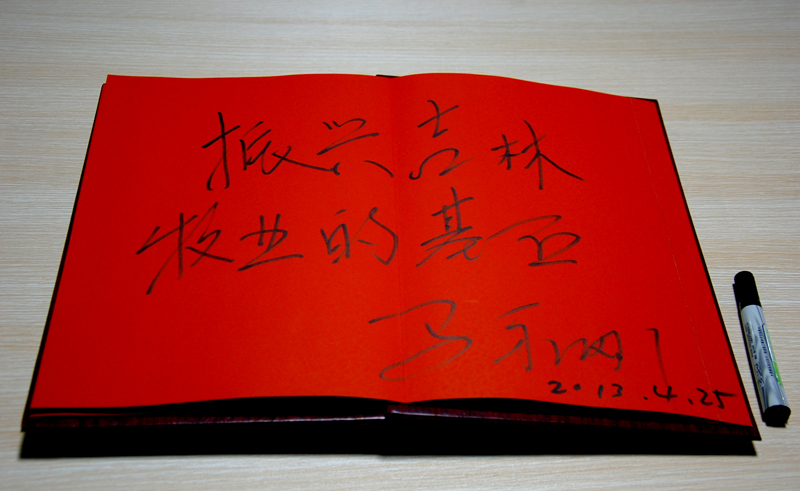 振兴吉林
牧业的基石
2013.4.25